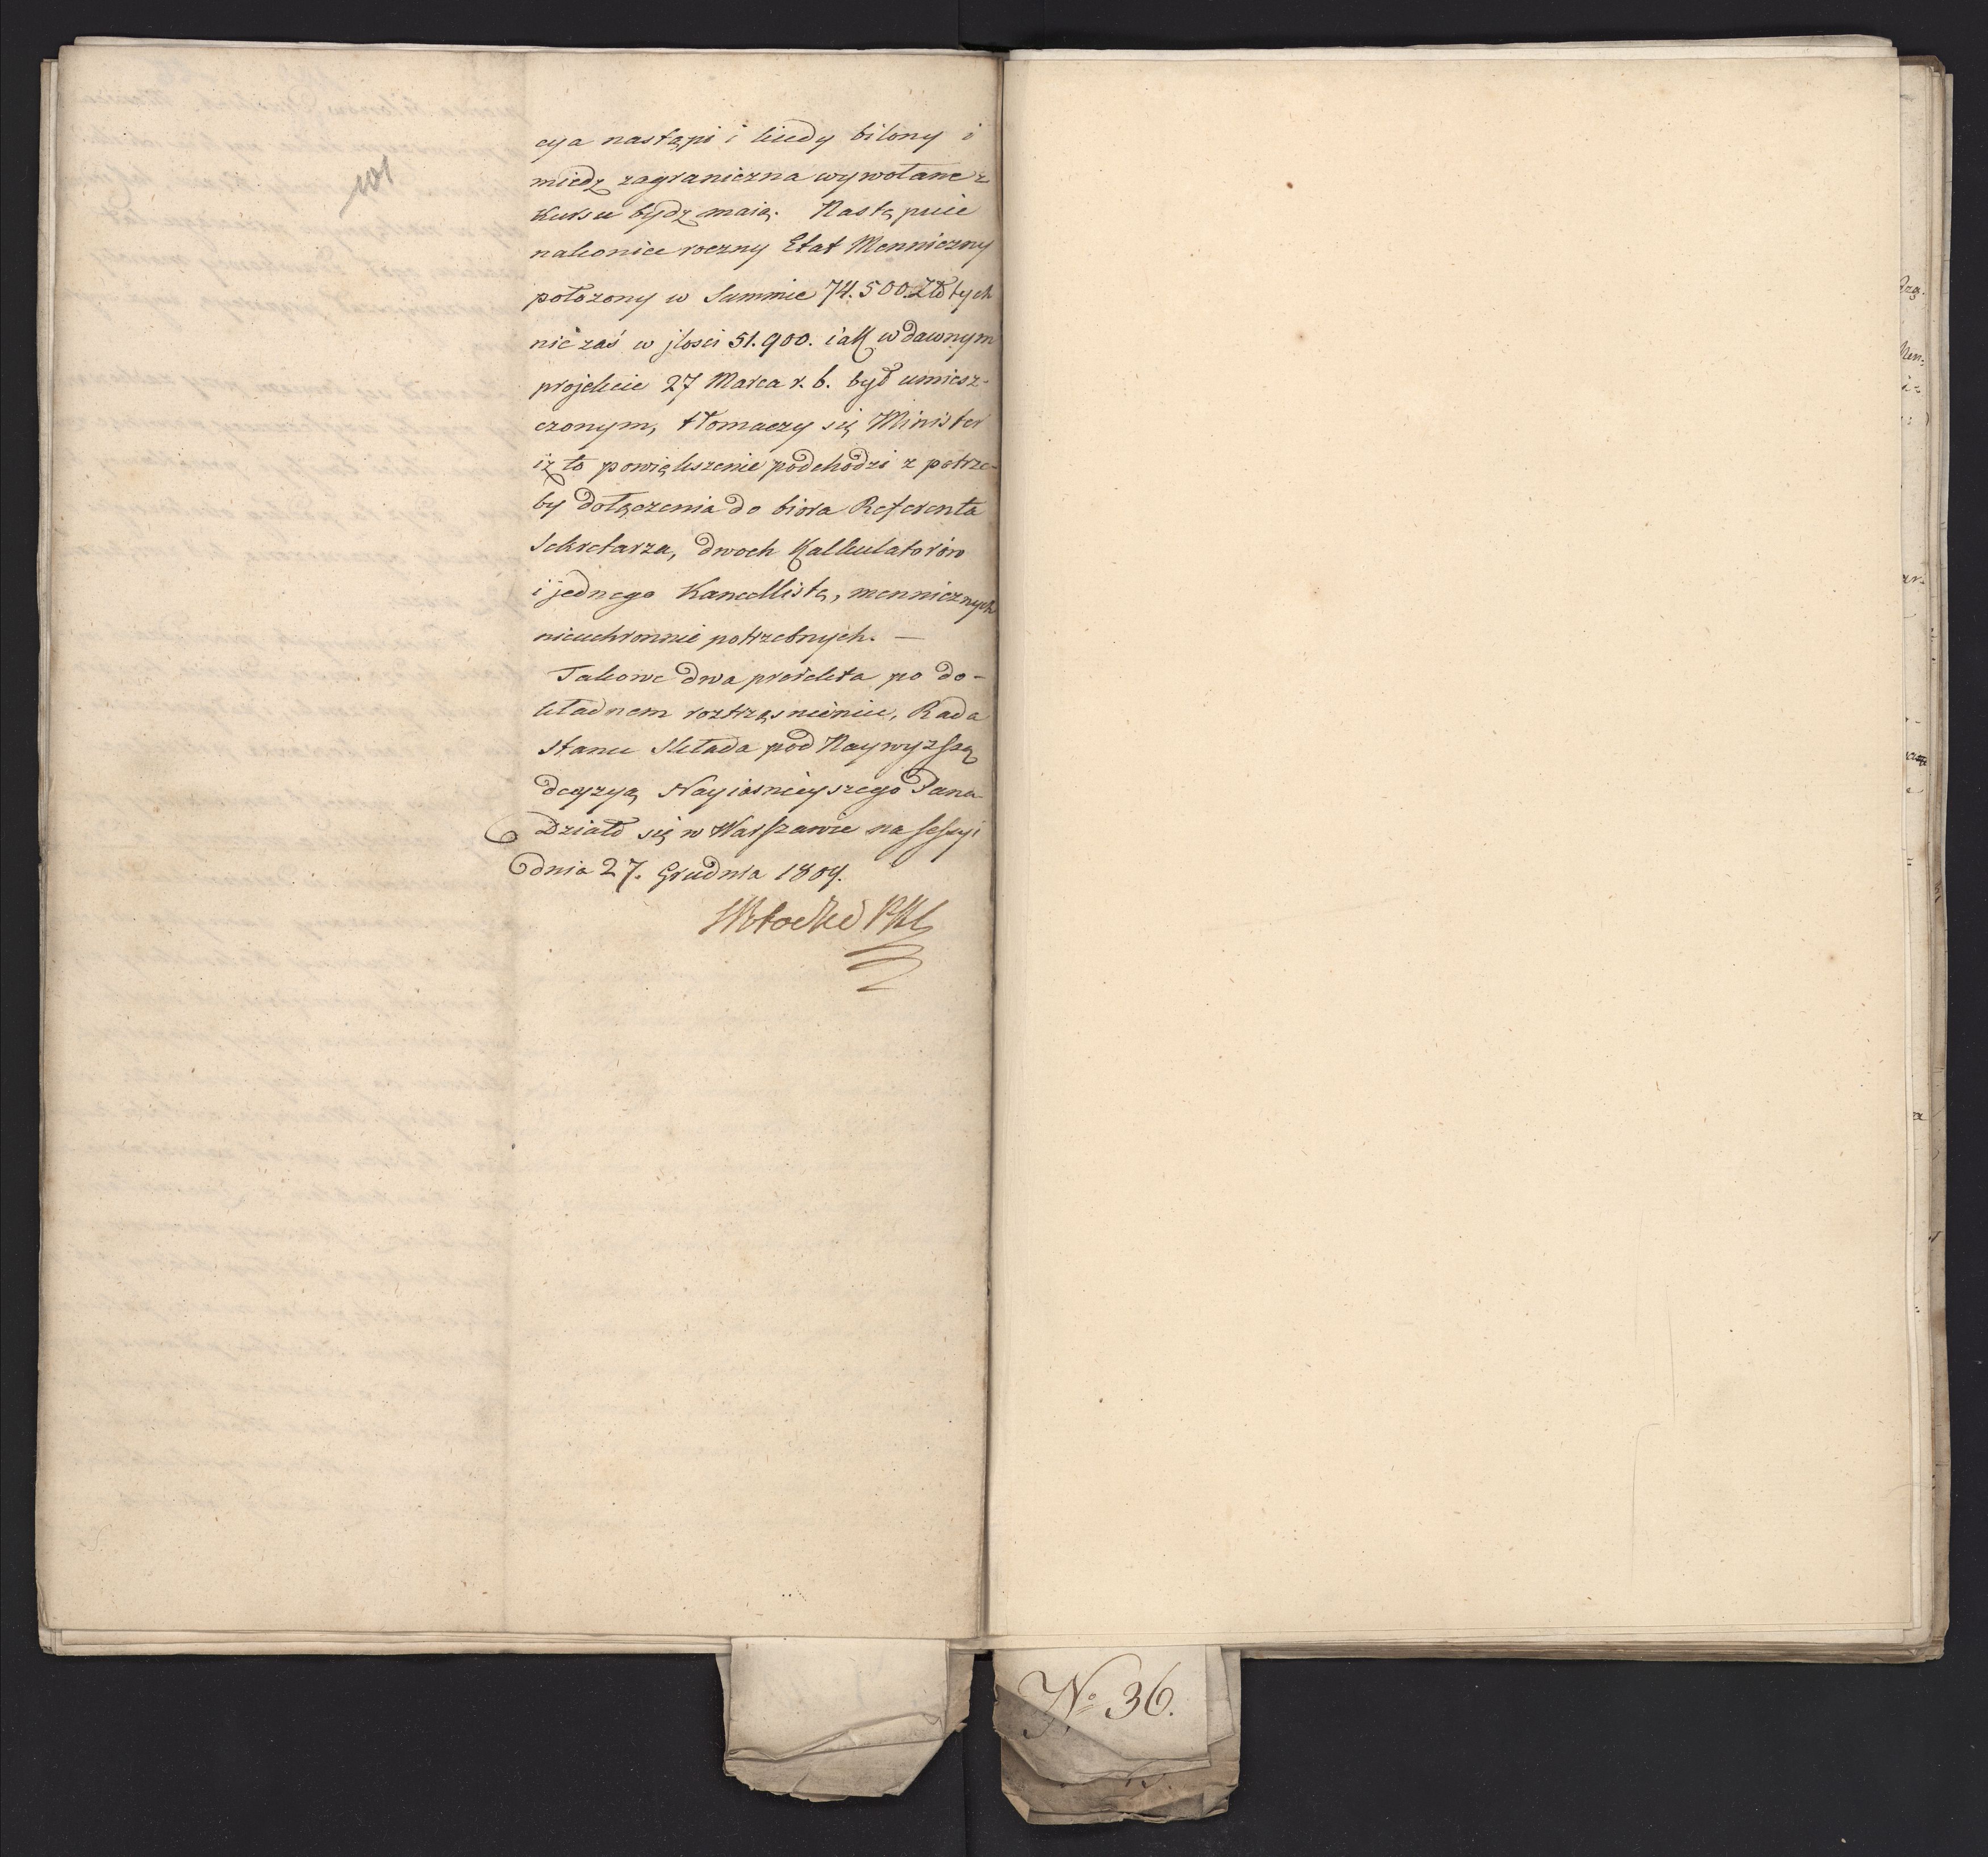 101
cya nastąpi i kiedy bilony i
miedz zagraniczna wywołane z
kursu bydz maią. Nastę puie
nakoniec roczny Etat Menniczny
położony w Summie 74.500 Złotych
nie zaś w jlosci 51.900. iak w dawnym
projekcie 27 Marca r. b. był umiesz-
czonym, tłomaczy się Minister
iż to powiększenie podchodzi z potrze-
by dołączenia do biora Referenta
Sekretarza, dwoch Kalkulatorów
i jednego Kancellistę, mennicznych
nieuchronnie potrzebnych. —
Takowe dwa proiekta po do-
kładnem roztrząsnieniu, Rada
Stanu Składa pod Naywyższą
decyzyą Nayiasnieyszego Pana
Działo się w Warszawie na Sessyi
dnia 27. Grudnia 1809.
No 36.